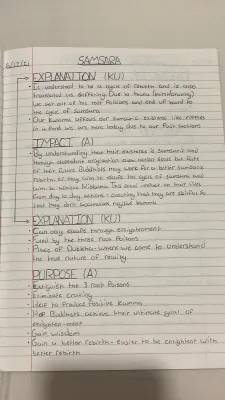 SAMSARA
EXPLANATION (KU)
· Is understood to be a cycle of rebirth and is often
translated as suffering. Due to
we act out of the root Poisons and end up bound to
the cycle of samsara
· Our kamma affects our samsaric existence like
in a Pond we are here today due to our Past actions
IMPACT (A)
· By understanding how their existence is samsara and
through dependent origination
of their future Buddhists may work for a better samsaric
rebirth or may aim to escape the cycle of samsara and
aim to achieve Nibbana. This could impact on their lives
from day to day actions - ensuring that they are skilful so
that they don't accumulate negative kamma
EXPLANATION (KU)
· Can only escape through enlightenment
· Fuelled by the three root Poisons
· Place of Dukkha where we come to understand
the true nature of reality
PURPOSE (A)
· Extinguish the 3 root Poisons
· Eliminate craving
· Help to Produce Positive Kamma
· Help Buddhists achieve their ultimate goal of
enlightenment
· Gain wisdom
· Gain a better rebirth - easier to be enlightened with
better rebirth